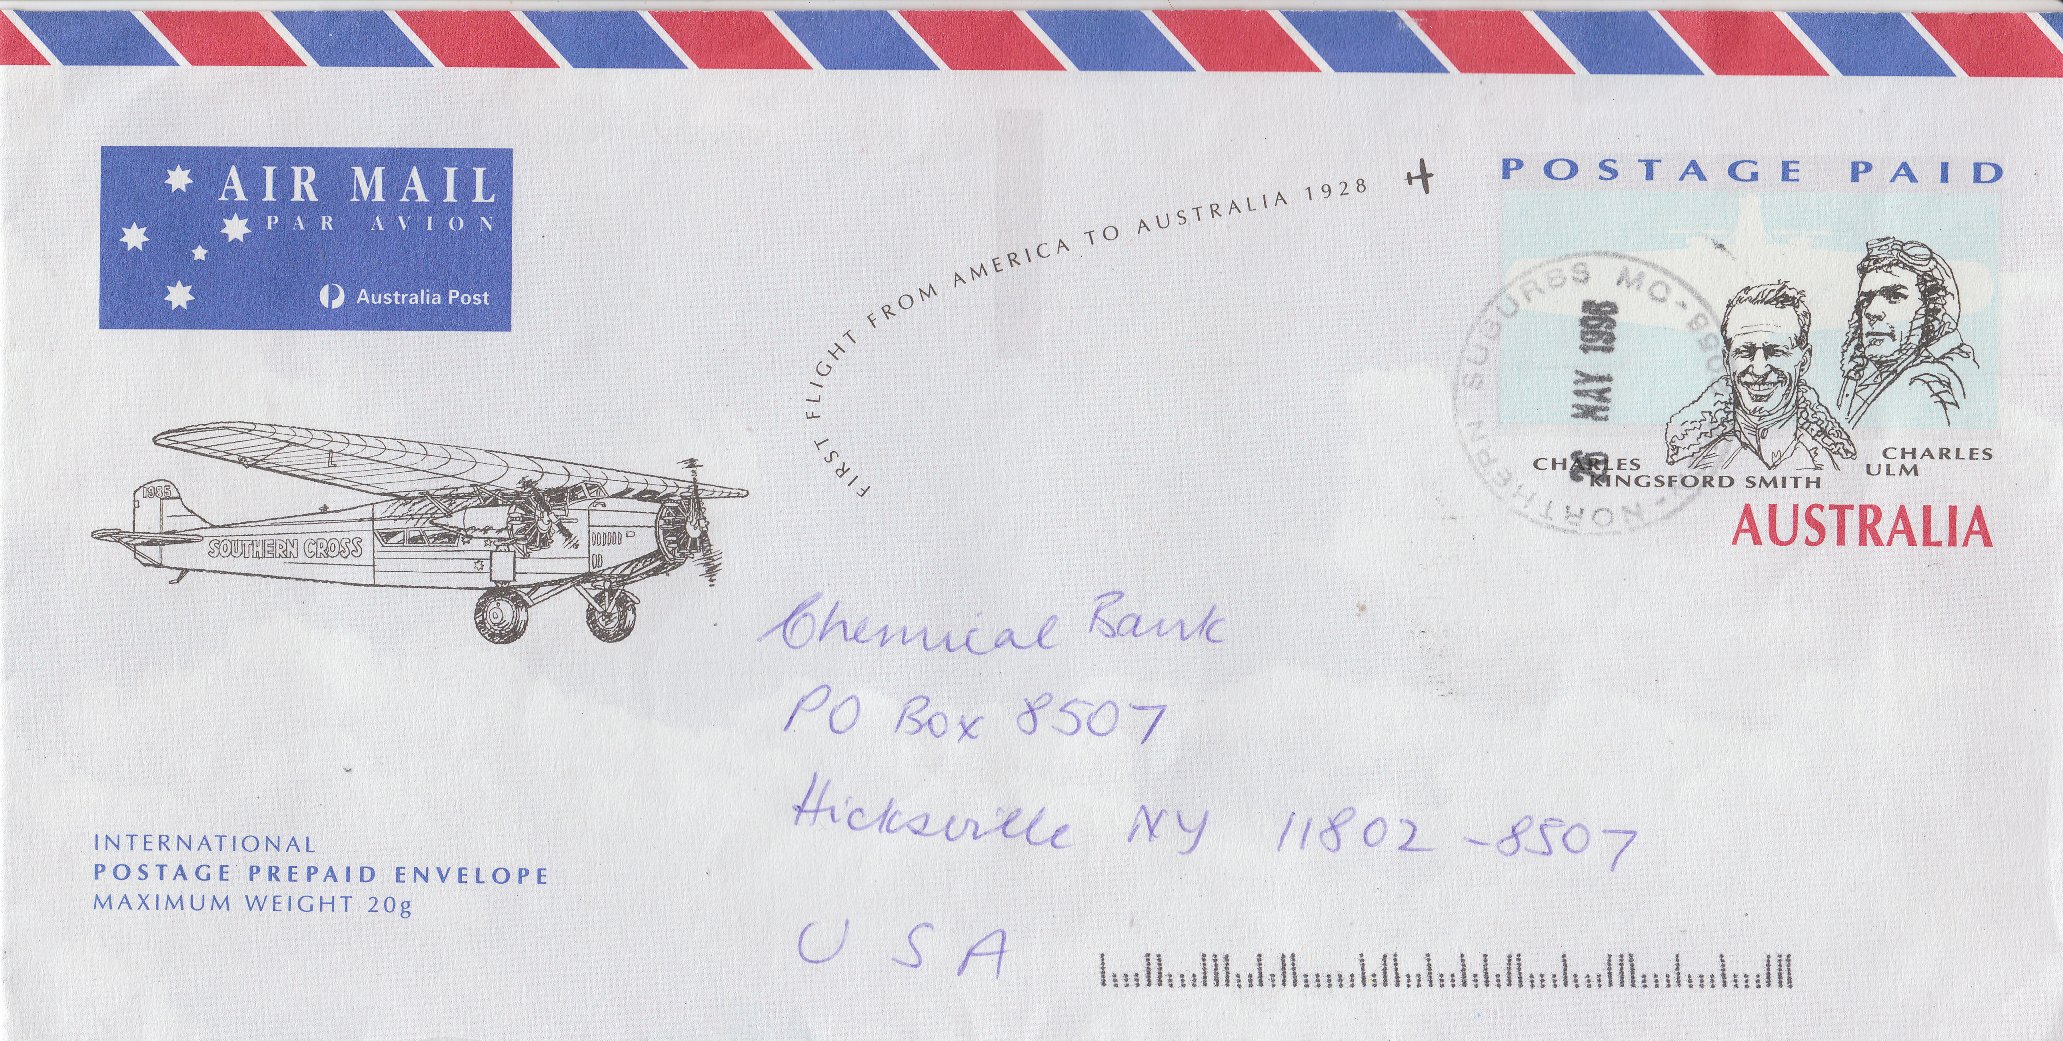 AIR MAIL
PAR AVION
Australia Post
FIRST FLIGHT FROM AMERICA TO AUSTRALIA 1928
POSTAGE PAID
NORTHERN SUBURBS MC
26 MAY 1998
CHARLES
KINGSFORD SMITH
CHARLES
ULM
AUSTRALIA
1985
SOUTHERN CROSS
Chemical Bank
PO Box 8507
Hicksville NY 11802-8507
USA
INTERNATIONAL
POSTAGE PREPAID ENVELOPE
MAXIMUM WEIGHT 20g